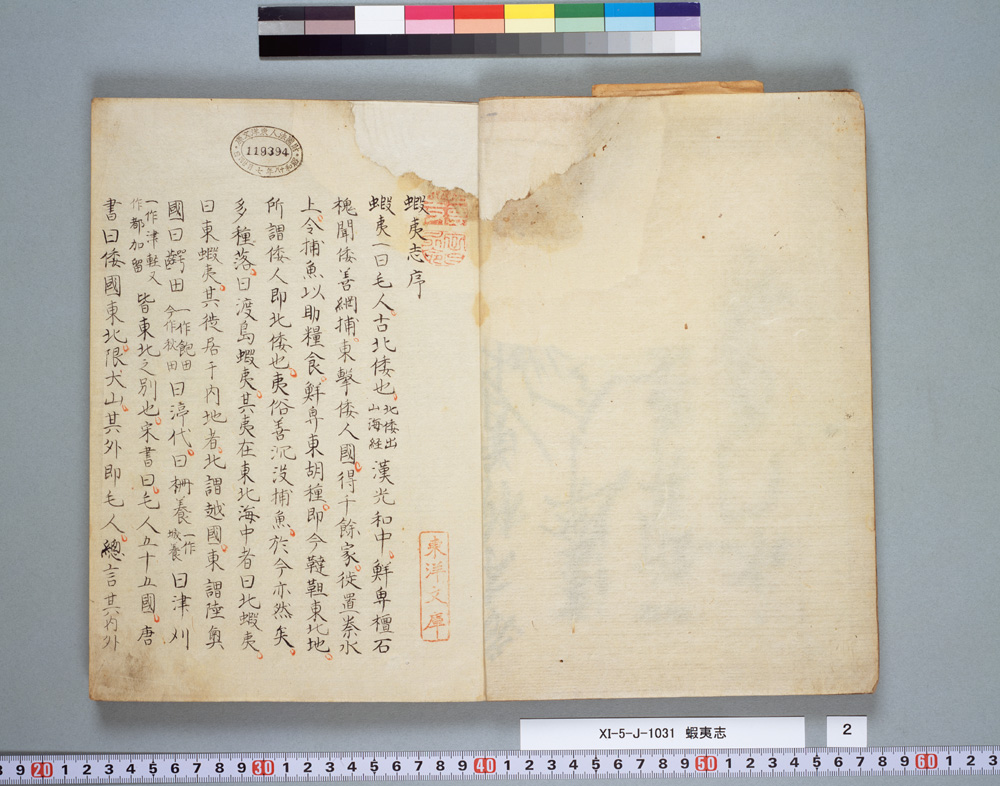 蝦夷志序
蝦夷一曰毛人。古北倭也。北倭出山海経漢光和中。鮮卑檀石
槐聞倭善網捕。東擊倭人國。得千餘家。徙置秦水
上。令捕魚以助糧食。鮮卑東胡種。即今韃靼東北地。
所謂倭人即北倭也。夷俗善沉没捕魚。於今亦然矣。
多種落。曰渡島蝦夷。其夷在東北海中者曰北蝦夷。
曰東蝦夷。其徙居于内地者。北謂越國。東謂陸奥
國曰齶田一作飽田今作秋田曰渟代。曰柵養一作城養曰津刈
一作津軽又作都加留皆東北之別也。宋書曰。毛人五十五國。唐
書曰倭國東北。限大山。其外即毛人。總言其内外
東洋文庫
119394
XI-5-J-1031 蝦夷志
2